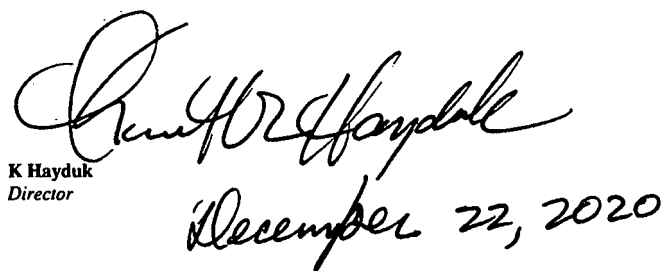 Hayduk
K Hayduk
Director
December 22, 2020